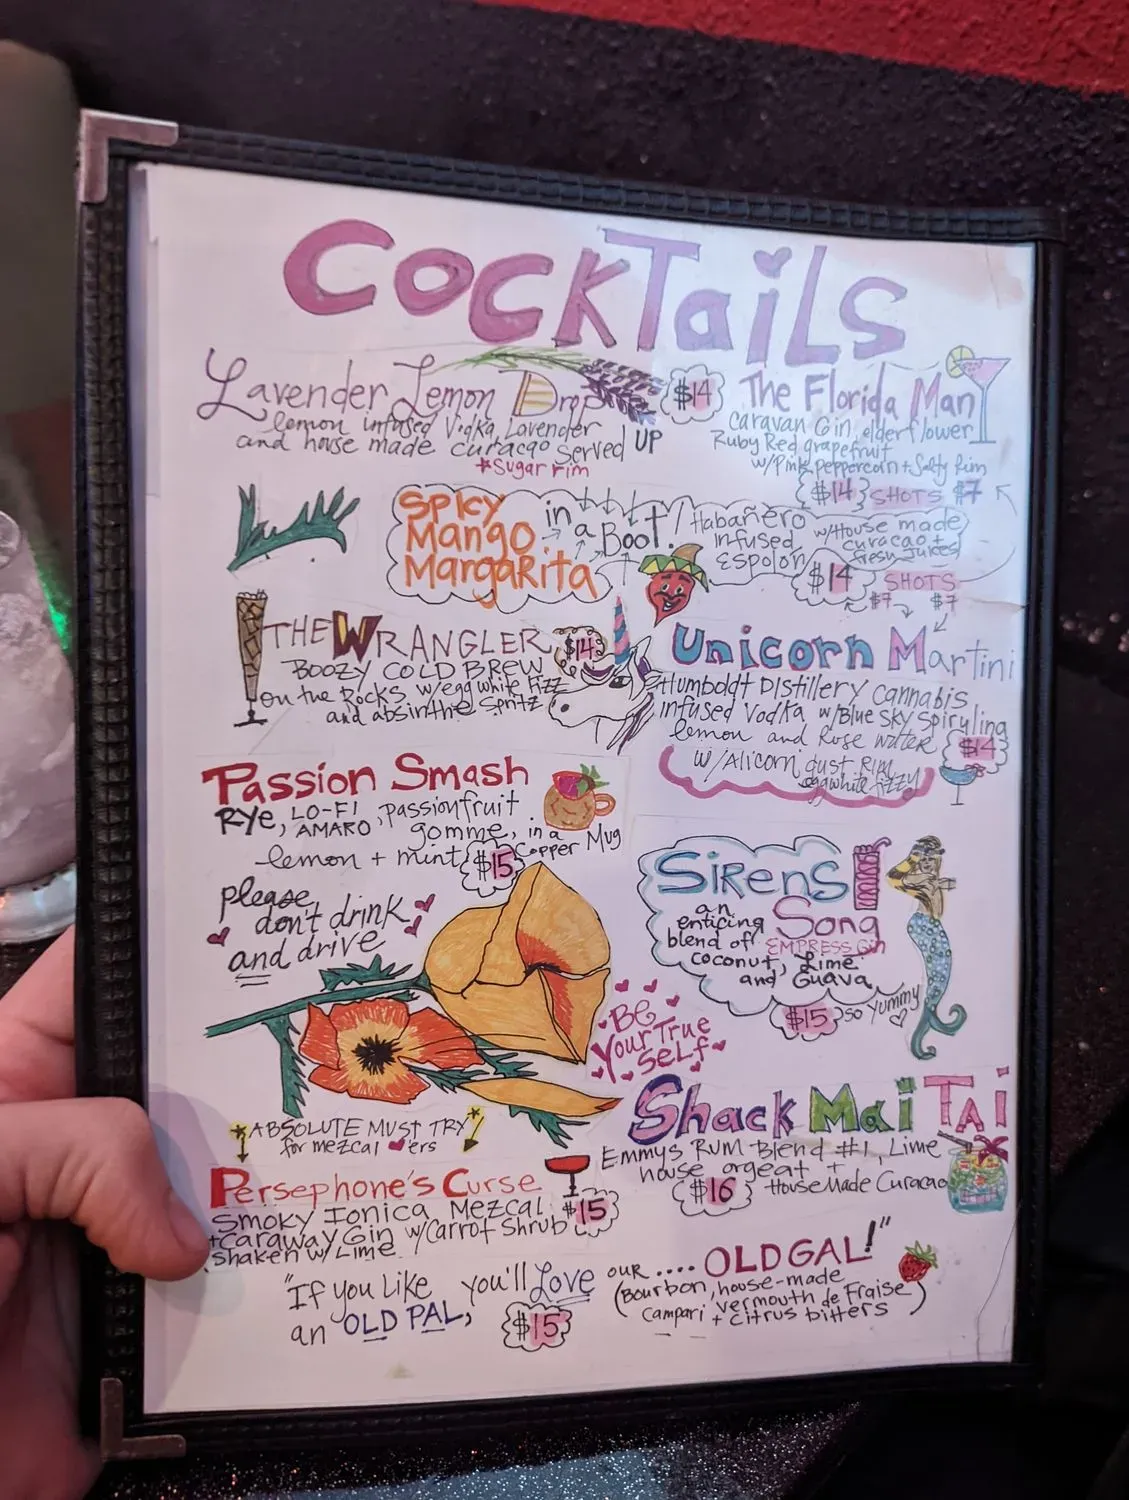 COCKTAiLS
Lavender Lemon Drop $14
lemon infused Vodka Lavender
and house made curaçao served UP
*Sugar rim
The Florida Man
Caravan Gin, elderflower
Ruby Red grapefruit
w/Pink peppercorn + Salty Rim
$14 SHOTS $7
Spicy
Mango
MargaRita
in
a
Boot!
Habañero
infused
Espolón
w/House made
curacao +
fresh Juices
$14 SHOTS
$7 $7
THE WRANGLER $14
BOOZY COLD BREW
on the Rocks w/egg white fizz
and absinthe Spritz
Unicorn Martini
Humboldt Distillery cannabis
infused Vodka w/Blue Sky Spiruling
lemon and Rose water $14
w/Alicorn dust Rim
eggwhite fizzy
Passion Smash
Rye, LO-FI AMARO, passionfruit
gomme, in a
Copper Mug
lemon + mint $15
please
don't drink
and drive
SiRens
Song
an
enticing
blend of EMPRESS Gin
coconut, Lime
and Guava
$15 so yummy
Be
Your True
SeLf
Shack Mai TAi
Emmys RUM Blend #1, Lime
house orgeat +
$16 House Made Curacao
*ABSOLUTE MUST TRY*
for mezcal ♥'ers
Persephone's Curse
Smoky Ionica Mezcal $15
+Caraway Gin w/Carrot Shrub
shaken w/Lime
"If you Like you'll Love our .... OLD GAL!"
an OLD PAL, $15
(Bourbon, house-made
vermouth de Fraise
Campari + citrus bitters)